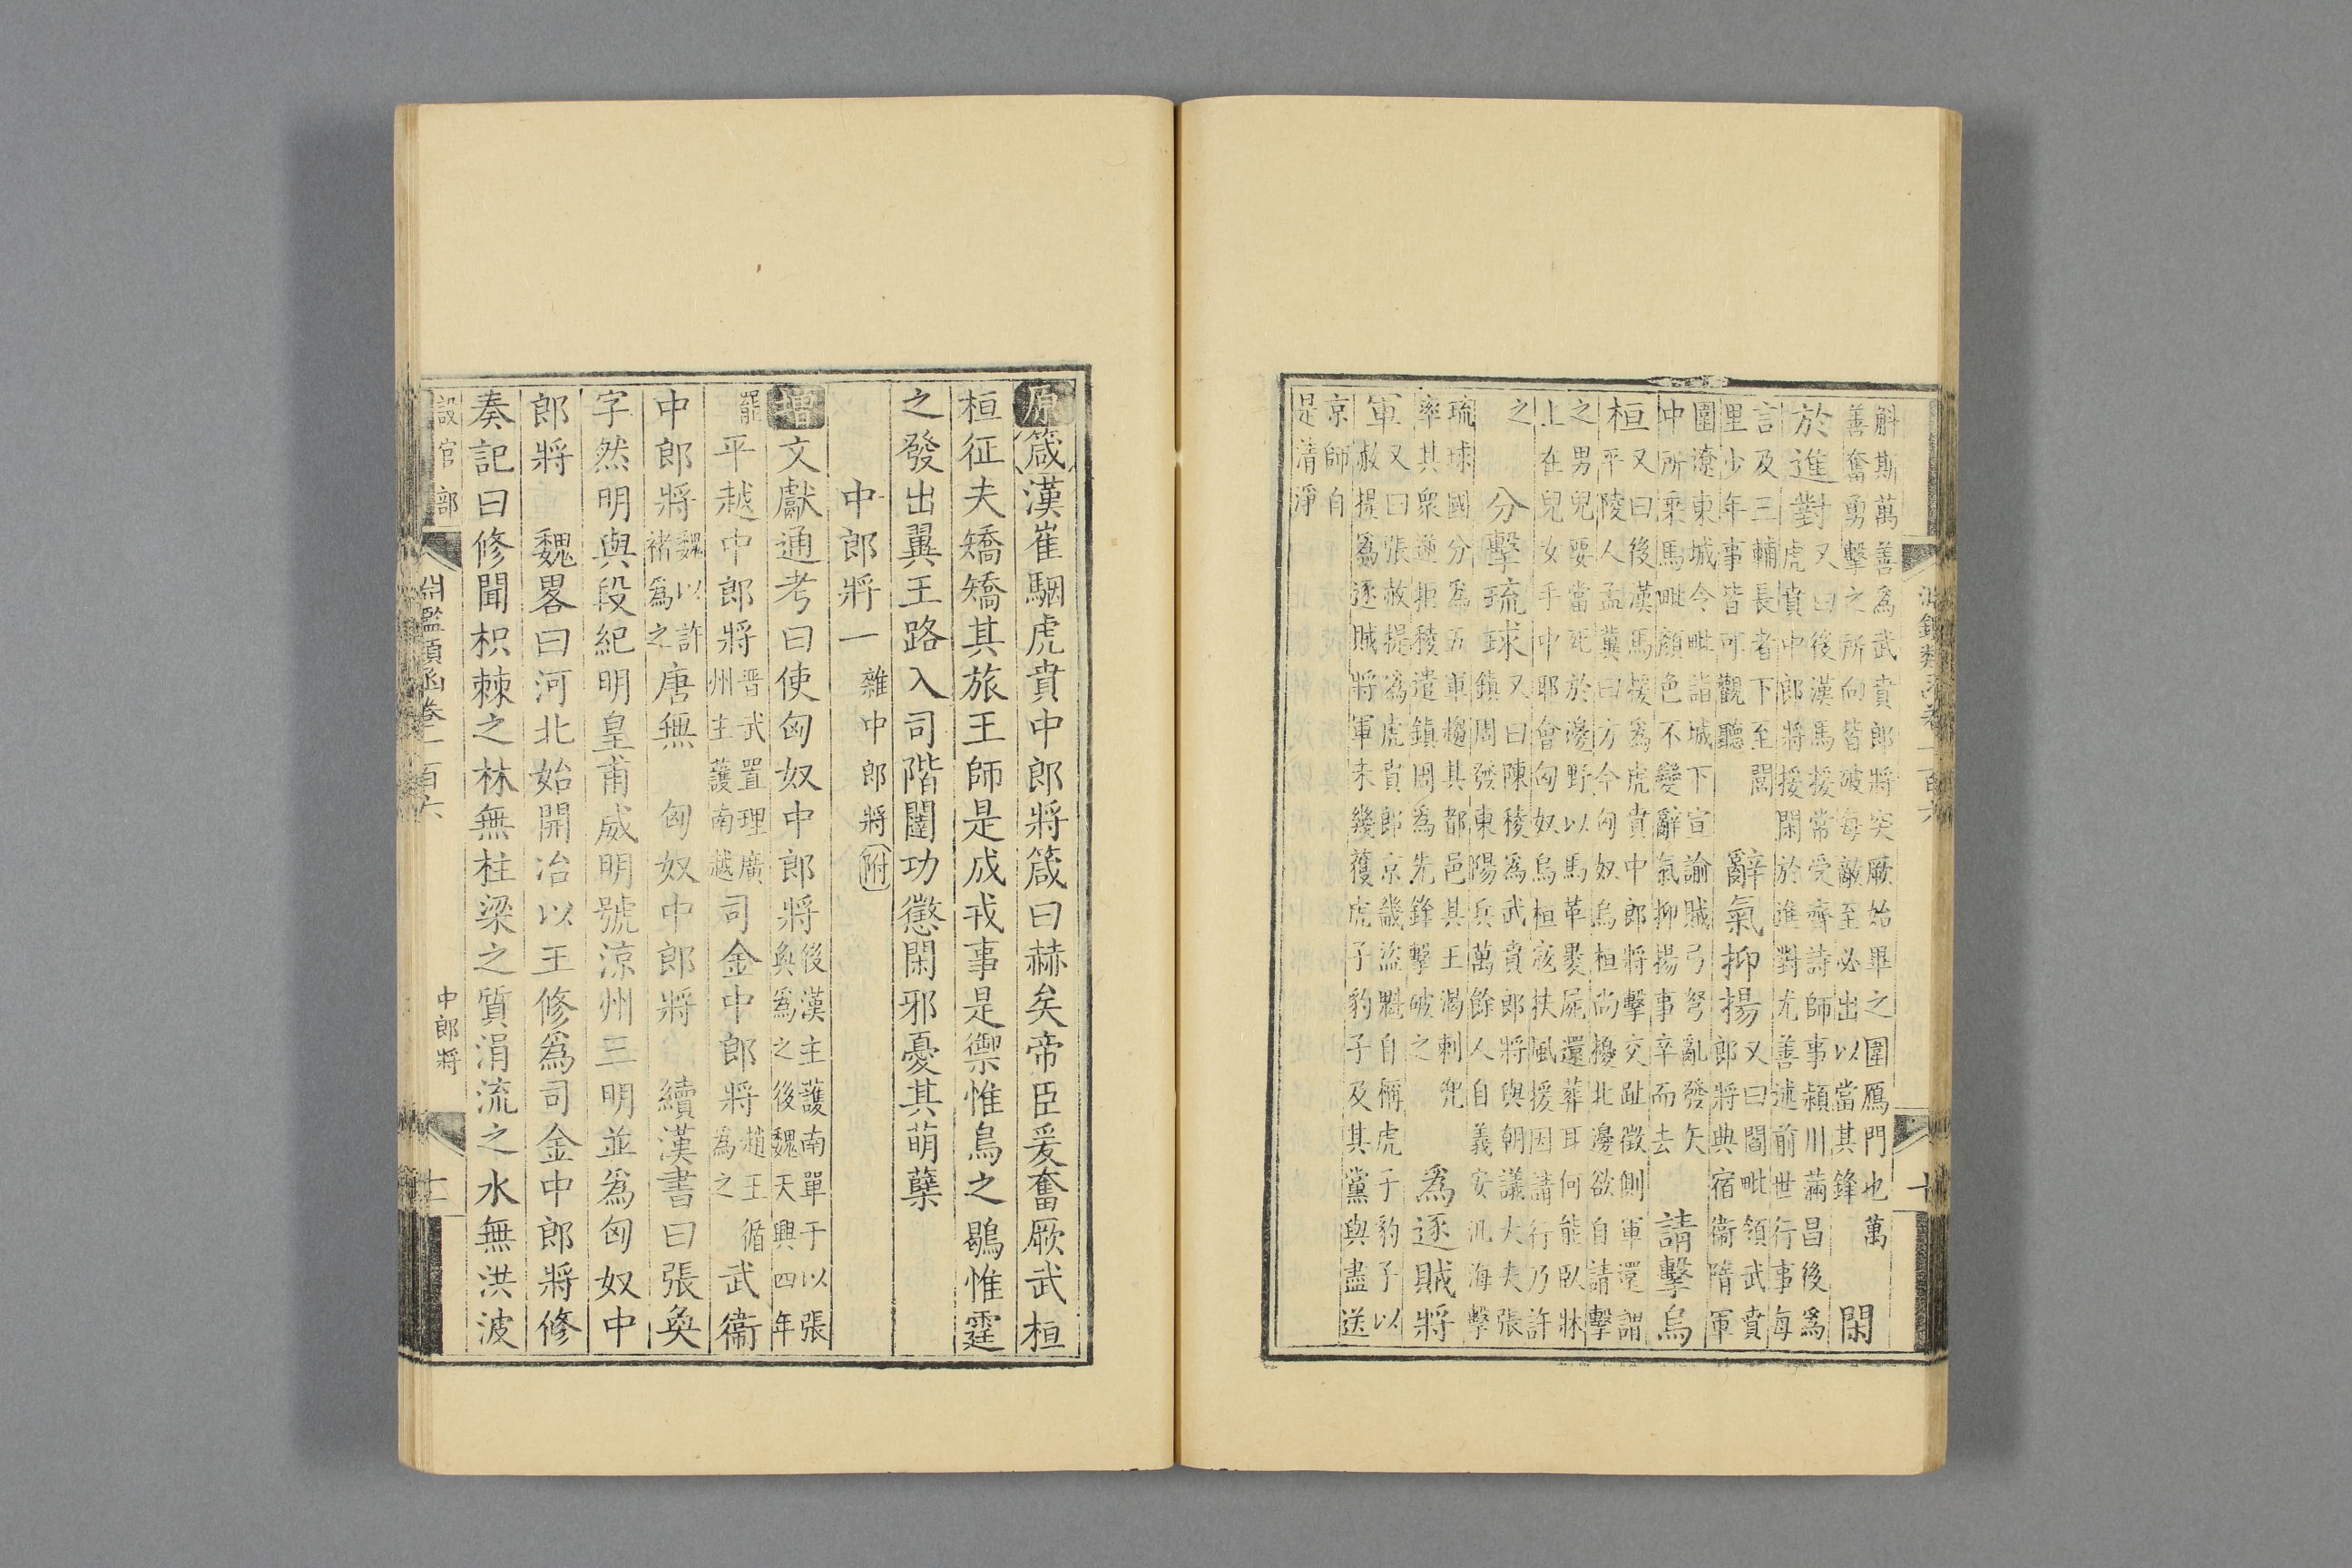 淵鑑類函卷一百六
十
斛斯萬善為武賁郎將突厥始畢之圍鴈門也萬
善奮勇擊之所向皆破每敵至必出以當其鋒
閑
於進對
又曰後漢馬援常受齊詩師事潁川蒲昌後為
虎賁中郎將援閑於進對尤善述前世行事每
言及三輔長者下至閭
里少年事皆可觀聽
辭氣抑揚
又曰閻毗領武賁
郎將典宿衞隋軍
圍遼東城令毗詣城下宣諭賊弓弩亂發矢
中所乗馬毗顏色不變辭氣抑揚事卒而去
請擊烏
桓
又曰後漢馬援為虎賁中郎將擊交趾徵側軍還謂
平陵人孟冀曰方今匈奴烏桓尚擾北邊欲自請擊
之男兒要當死於邊野以馬革褁屍還葬耳何能臥牀
上在兒女手中耶會匈奴烏桓宼扶風援因請行乃許
之
分擊琉球
又曰陳稜為武賁郎將與朝議大夫張
鎮周發東陽兵萬餘人自義安汎海擊
琉球國分為五軍趨其都邑其王渴剌兜
率其衆逆拒稜遣鎮周為先鋒擊破之
為逐賊將
軍
又曰張赦提為虎賁郎京畿盜魁自稱虎子豹子以
赦提為逐賊將軍未幾獲虎子豹子及其黨與盡送
京師自
是清淨
原箴漢崔駰虎賁中郎將箴曰赫矣帝臣爰奮厥武桓
桓征夫矯矯其旅王師是成戎事是禦惟鳥之鶡惟霆
之發出翼王路入司階闥功懲閑邪憂其萌蘖
中郎將一
雜中郎將附
增文獻通考曰使匈奴中郎將
後漢主護南單于以張
奐為之後魏天興四年
罷
平越中郎將
晋武置理廣
州主護南越
司金中郎將
趙王循
為之
武衞
中郎將
魏以許
褚為之
唐無
匈奴中郎將
續漢書曰張奐
字然明與段紀明皇甫威明號涼州三明並為匈奴中
郎將
魏畧曰河北始開冶以王修為司金中郎將修
奏記曰修聞枳棘之林無柱梁之質涓流之水無洪波
設官部
淵鑑類函卷一百六
中郎將
十一